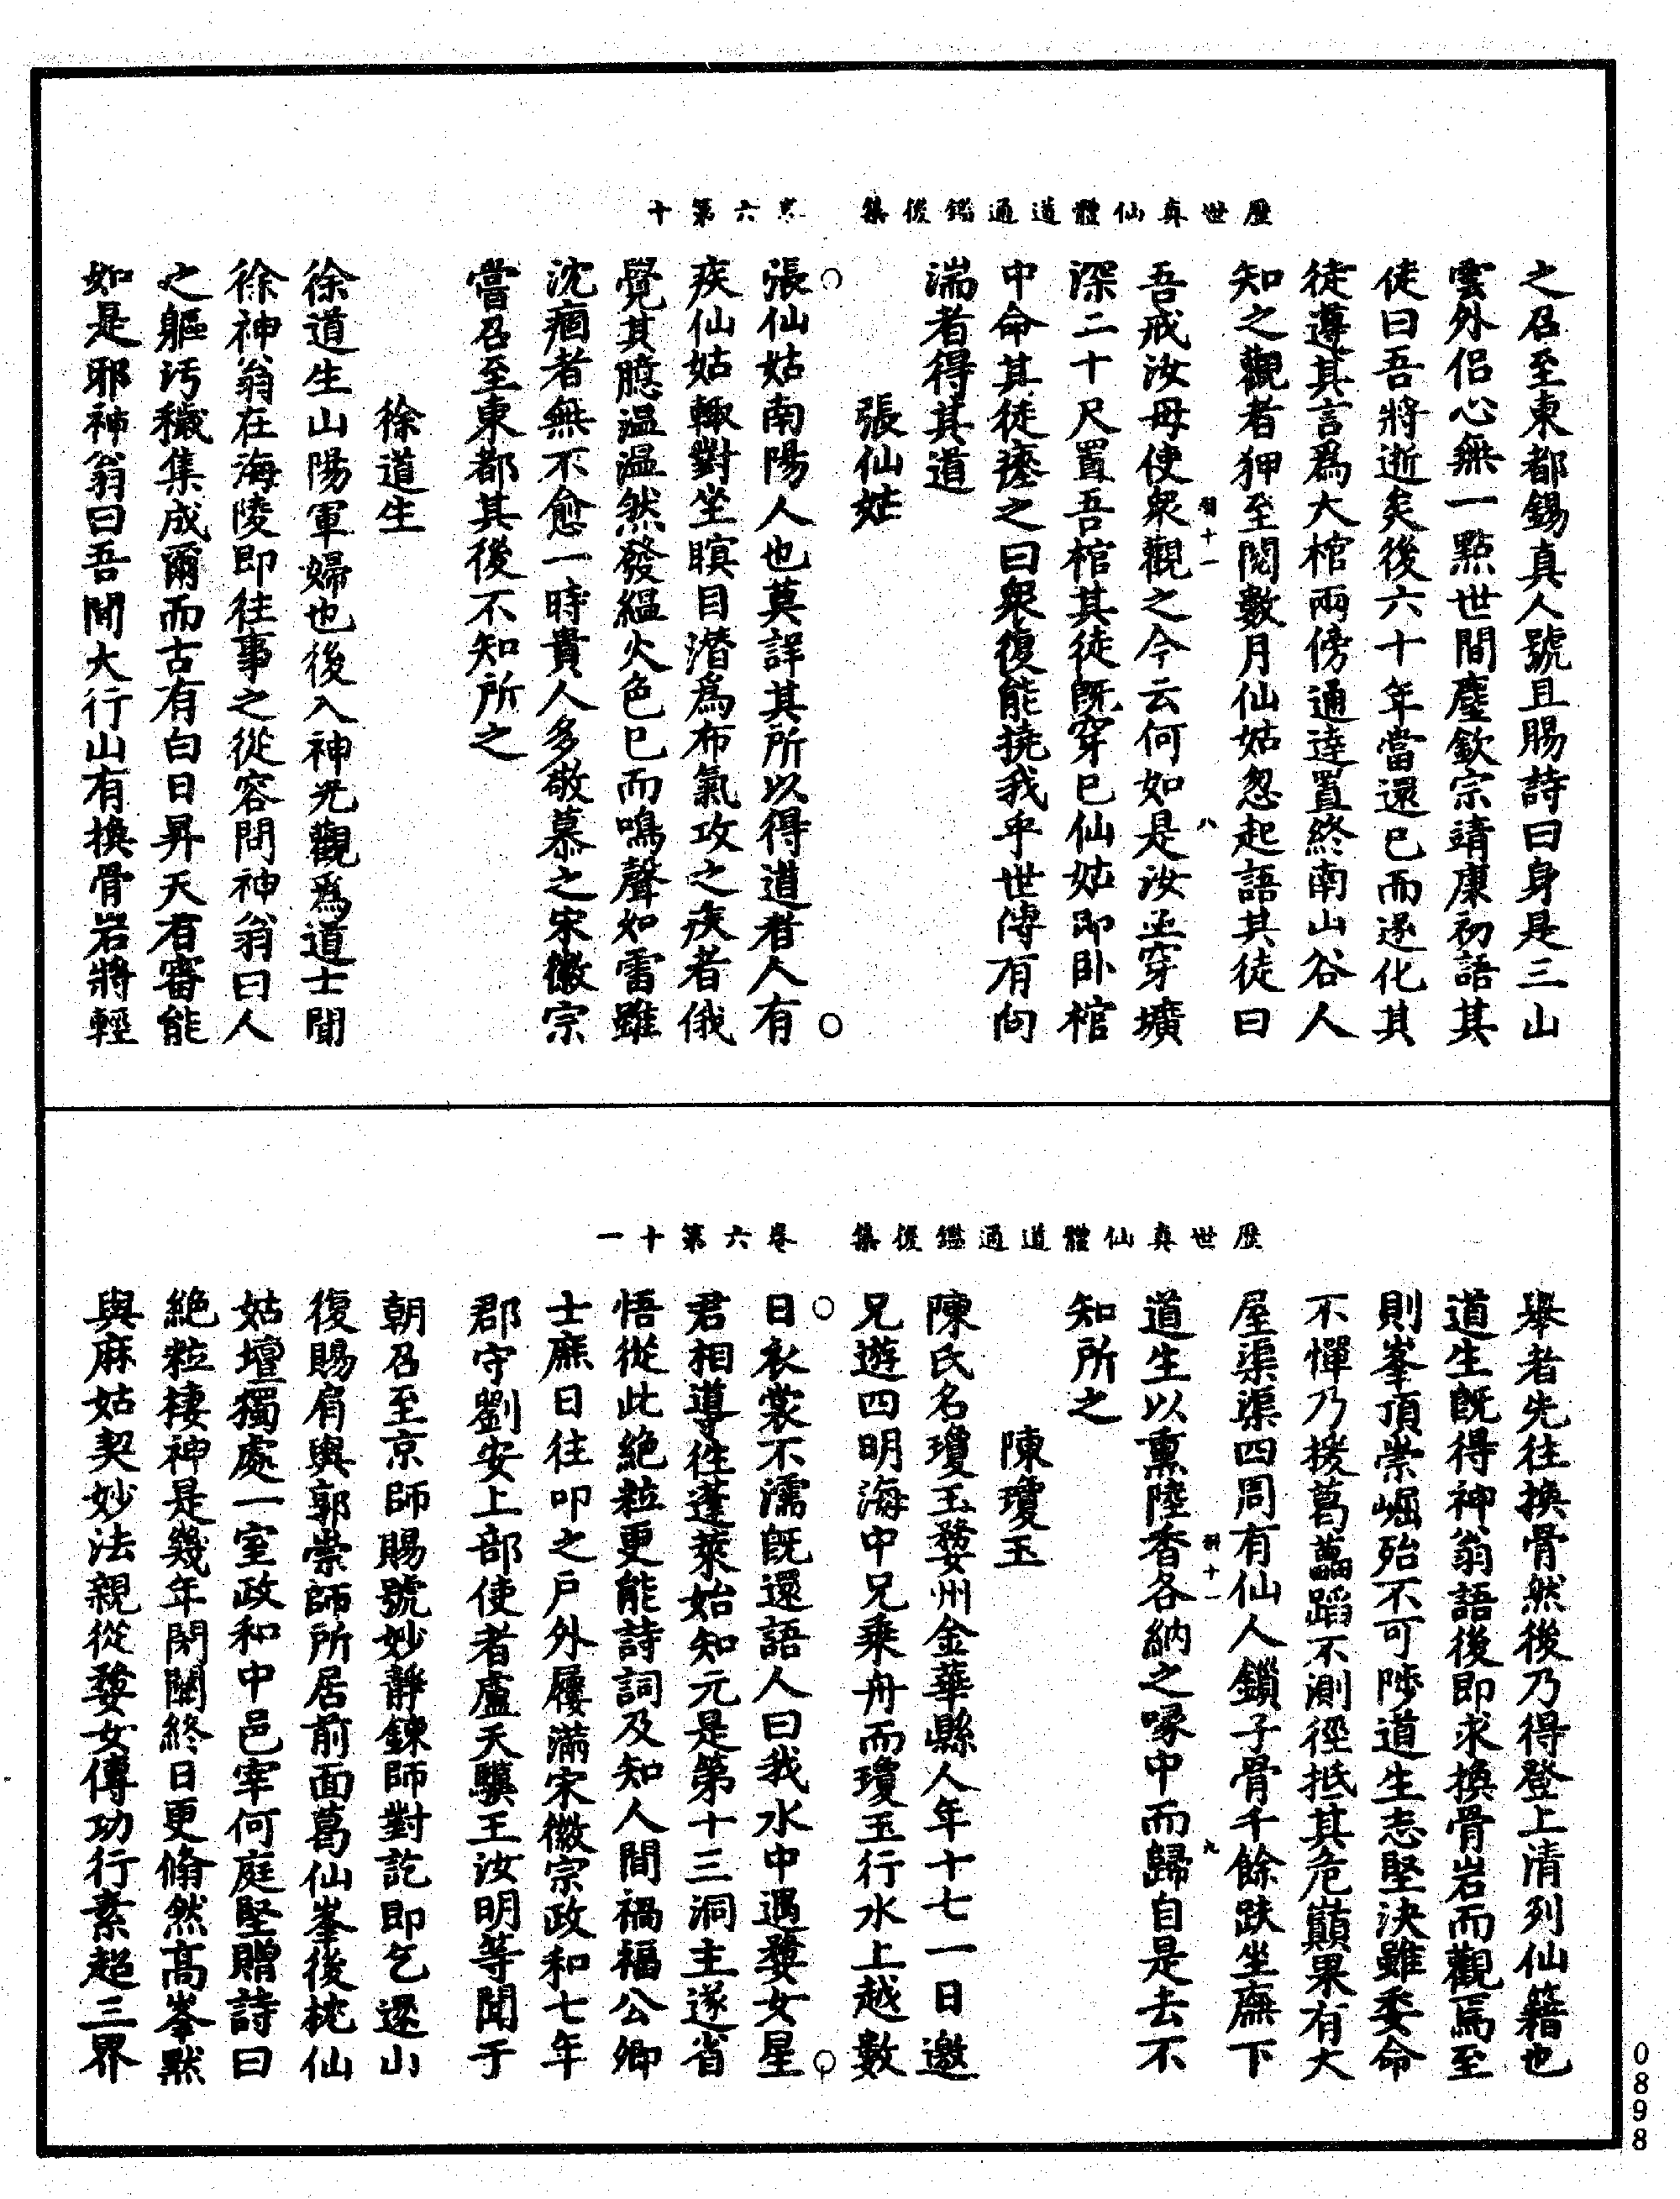 歷世真仙體道通鑑後集 卷六第十
之召至東都錫真人號且賜詩曰身是三山
雲外侶心無一點世間塵欽宗靖康初語其
徒曰吾將逝矣後六十年當還已而遂化其
徒遵其言爲大棺兩傍通達置終南山谷人
知之觀者狎至閱數月仙姑忽起語其徒曰
吾戒汝毋使衆觀之今云何如是汝亟穿壙
深二十尺置吾棺其徒旣穿已仙姑即卧棺
中命其徒瘞之曰衆復能撓我乎世傳有向
湍者得其道
張仙姑
張仙姑南陽人也莫詳其所以得道者人有
疾仙姑輙對坐瞑目潛爲布氣攻之疾者俄
覺其臆温温然發緼火色已而鳴聲如雷雖
沈痼者無不愈一時貴人多敬慕之宋徽宗
嘗召至東都其後不知所之
徐道生
徐道生山陽軍婦也後入神光觀爲道士聞
徐神翁在海陵即往事之從容問神翁曰人
之軀汚穢集成爾而古有白日昇天者審能
如是邪神翁曰吾聞大行山有換骨岩將輕
八
歷世真仙體道通鑑後集 卷六第十一
舉者先往換骨然後乃得登上清列仙籍也
道生旣得神翁語後即求換骨岩而觀焉至
則峯頂崇崛殆不可陟道生志堅決雖委命
不憚乃援葛藟蹈不測徑抵其危巔果有大
屋渠渠四周有仙人鎖子骨千餘趺坐廡下
道生以熏陸香各納之喙中而歸自是去不
知所之
陳瓊玉
陳氏名瓊玉婺州金華縣人年十七一日邀
兄遊四明海中兄乘舟而瓊玉行水上越數
日衣裳不濡旣還語人曰我水中遇婺女星
君相導往蓬萊始知元是第十三洞主遂省
悟從此絶粒更能詩詞及知人間禍福公卿
士庶日往叩之戶外屨滿宋徽宗政和七年
郡守劉安上部使者盧天驥王汝明等聞于
朝召至京師賜號妙靜鍊師對訖即乞還山
復賜肩輿郭崇師所居前面葛仙峯後枕仙
姑壇獨處一室政和中邑宰何庭堅贈詩曰
絶粒棲神是幾年閉關終日更翛然高峯默
與麻姑契妙法親從婺女傳功行素超三界
九
0898